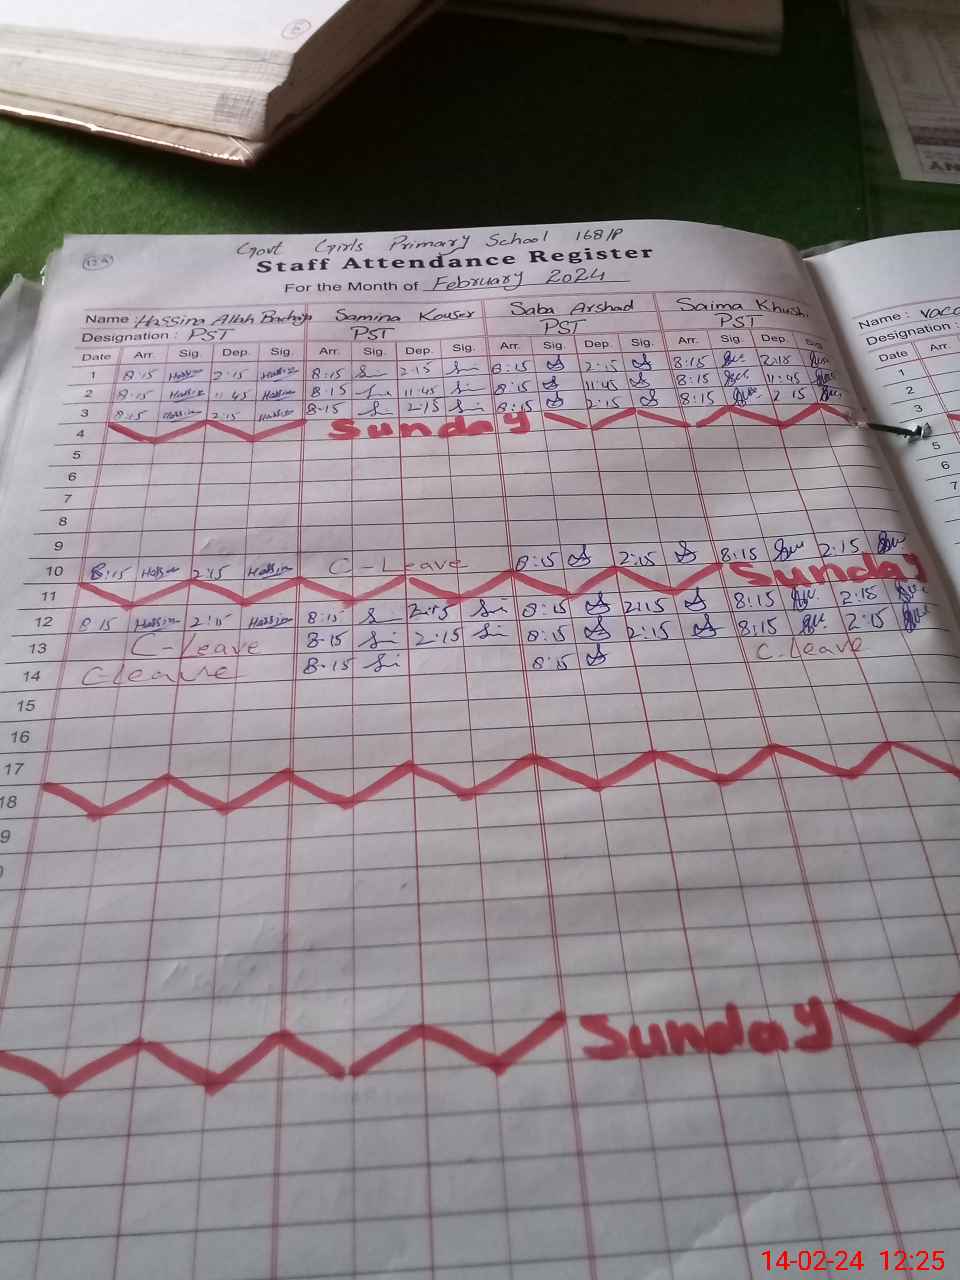 Govt Girls Primary School 168/P
Staff Attendance Register
For the Month of February 2024
Name Hassina Allah Bachaya Samina Kouser Saba Arshad Saima Khushi Name :
Designation : PST PST PST PST Designation :
Date Arr. Sig. Dep. Sig. Arr. Sig. Dep. Sig. Arr. Sig. Dep. Sig. Arr. Sig. Dep. Sig. Date Arr.
1 8:15 Hassina 2:15 Hassina 8:15 2:15 8:15 2:15 8:15 2:15 1
2 8:15 Hassina 11:45 Hassina 8:15 11:45 8:15 11:45 8:15 11:45 2
3 8:15 Hassina 2:15 Hassina 8:15 2:15 8:15 2:15 8:15 2:15 3
4 Sunday
5 5
6 6
7 7
8
9
10 8:15 Hassina 2:15 Hassina C-Leave 8:15 2:15 8:15 2:15
11 Sunday
12 8:15 Hassina 2:15 Hassina 8:15 2:15 8:15 2:15 8:15 2:15
13 C-Leave 8:15 2:15 8:15 2:15 8:15 2:15
14 C leave 8:15 8:15 C.Leave
15
16
17
18
9
Sunday
14-02-24 12:25